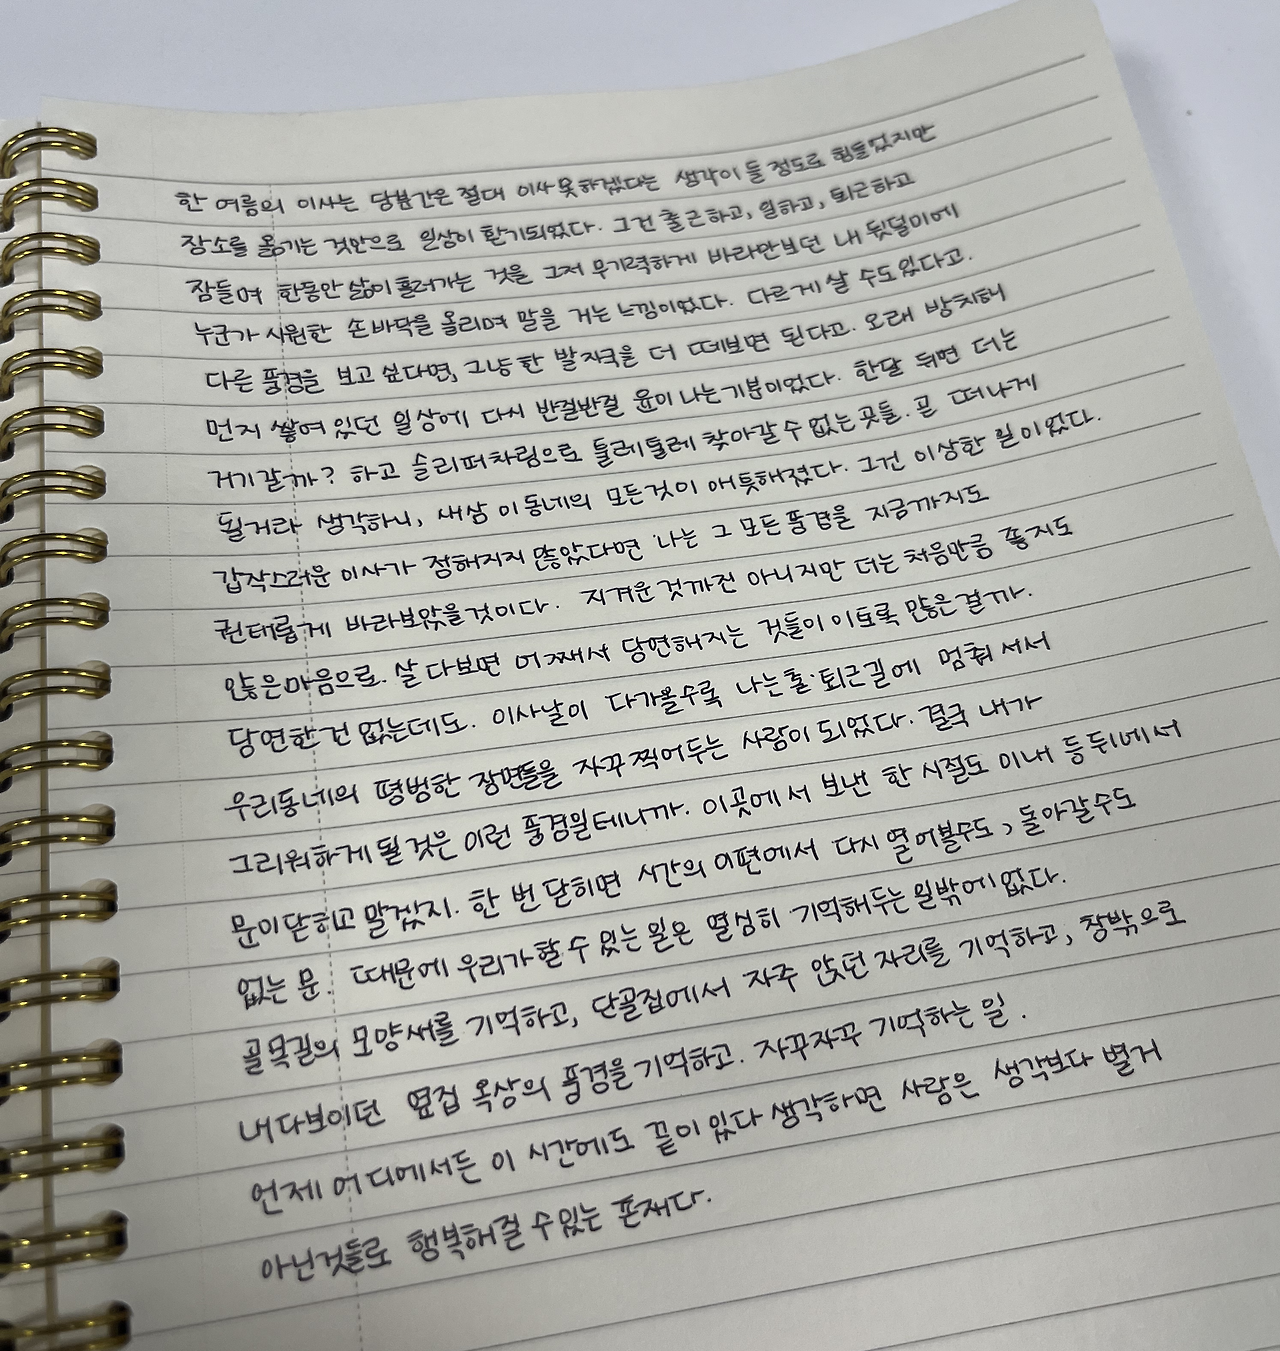 한 여름의 이사는 당분간은 절대 이사 못하겠다는 생각이 들 정도로 힘들었지만
장소를 옮기는 것만으로 일상이 환기되었다. 그건 출근하고, 일하고, 퇴근하고
잠들며 한동안 삶이 흘러가는 것을 그저 무기력하게 바라만보던 내 뒷덜미에
누군가 시원한 손바닥을 올리며 말을 거는 느낌이었다. 다르게 살 수도 있다고.
다른 풍경을 보고 싶다면, 그냥 한 발자국을 더 떼보면 된다고. 오래 방치해
먼지 쌓여 있던 일상에 다시 반걸반걸 윤이 나는 기분이었다. 한달 뒤면 더는
거기 갈까? 하고 슬리퍼차림으로 툴레툴레 찾아갈 수 없는 곳들. 곧 떠나게
될거라 생각하니, 새삼 이 동네의 모든것이 애틋해졌다. 그건 이상한 일이었다.
갑작스러운 이사가 정해지지 않았다면 나는 그 모든 풍경을 지금까지도
권태롭게 바라보았을것이다. 지겨운 것까진 아니지만 더는 처음만큼 좋지도
않은 마음으로. 살다보면 어째서 당연해지는 것들이 이토록 많은걸까.
당연한 건 없는데도. 이사날이 다가올수록 나는 출·퇴근길에 멈춰 서서
우리동네의 평범한 장면들을 자꾸 찍어두는 사람이 되었다. 결국 내가
그리워하게 될 것은 이런 풍경일테니까. 이곳에서 보낸 한 시절도 이내 등 뒤에서
문이 닫히고 말겠지. 한 번 닫히면 시간의 이편에서 다시 열어볼수도, 돌아갈수도
없는 문. 때문에 우리가 할 수 있는 일은 열심히 기억해두는 일밖에 없다.
골목길의 모양새를 기억하고, 단골집에서 자주 앉던 자리를 기억하고, 창밖으로
내다보이던 옆집 옥상의 풍경을 기억하고. 자꾸자꾸 기억하는 일.
언제 어디에서든 이 시간에도 끝이 있다 생각하면 사람은 생각보다 별거
아닌것들로 행복해질 수 있는 존재다.